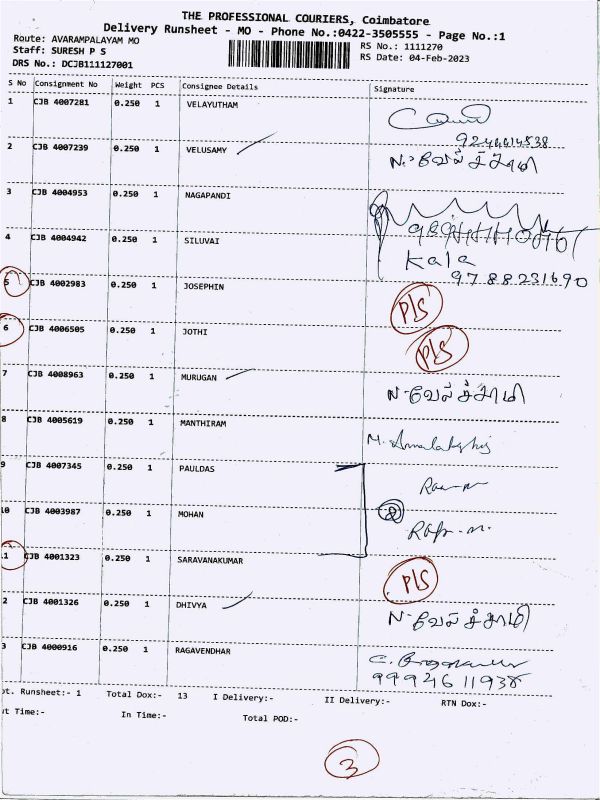 THE PROFESSIONAL COURIERS, Coimbatore
Delivery Runsheet - MO - Phone No.:0422-3505555 - Page No.:1
Route: AVARAMPALAYAM MO
RS No.: 1111270
Staff: SURESH P S
RS Date: 04-Feb-2023
DRS No.: DCJB111127001
S No Consignment No Weight PCS Consignee Details Signature
1 CJB 4007281 0.250 1 VELAYUTHAM
9244414538
2 CJB 4007239 0.250 1 VELUSAMY N. வேல்ச்சாமி
3 CJB 4004953 0.250 1 NAGAPANDI
4 CJB 4004942 0.250 1 SILUVAI Kala
9788231690
5 CJB 4002983 0.250 1 JOSEPHIN P/S
6 CJB 4006505 0.250 1 JOTHI P/S
7 CJB 4008963 0.250 1 MURUGAN N. வேல்ச்சாமி
8 CJB 4005619 0.250 1 MANTHIRAM M.
9 CJB 4007345 0.250 1 PAULDAS
10 CJB 4003987 0.250 1 MOHAN
11 CJB 4001323 0.250 1 SARAVANAKUMAR P/S
2 CJB 4001326 0.250 1 DHIVYA N. வேல்ச்சாமி
3 CJB 4000916 0.250 1 RAGAVENDHAR
9994611938
ot. Runsheet:- 1 Total Dox:- 13 I Delivery:- II Delivery:- RTN Dox:-
ut Time:- In Time:- Total POD:-
3